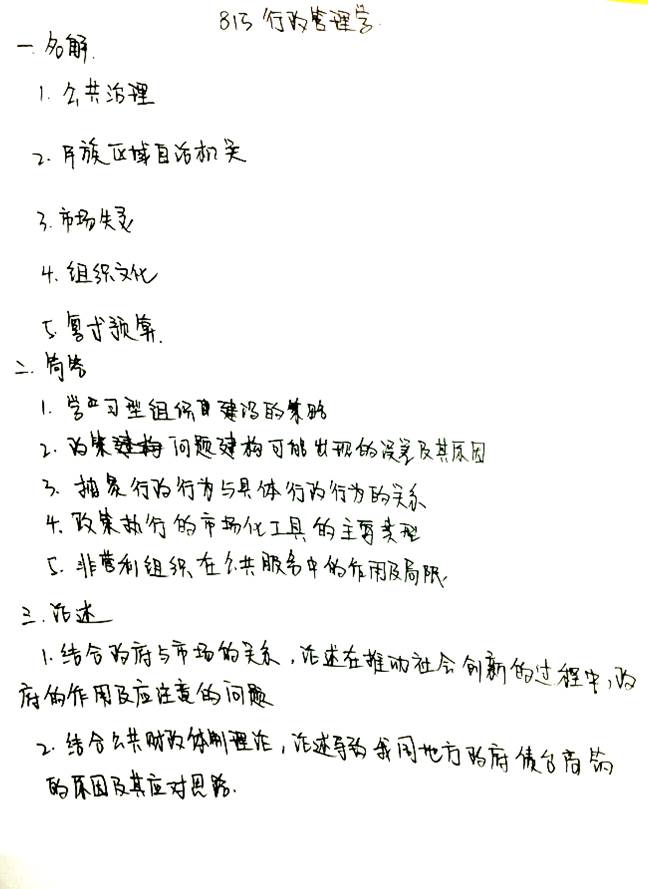 815 行政管理学
一. 名解.
1. 公共治理
2. 民族区域自治机关
3. 市场失灵
4. 组织文化
5. 复式预算.
二. 简答
1. 学习型组织建设的策略
2. 政策问题建构可能出现的误差及其原因
3. 抽象行政行为与具体行政行为的关系
4. 政策执行的市场化工具的主要类型
5. 非营利组织在公共服务中的作用及局限.
三. 论述
1. 结合政府与市场的关系, 论述在推动社会创新的过程中, 政
府的作用及应注意的问题
2. 结合公共财政体制理论, 论述导致我国地方政府债台高筑
的原因及其应对思路.